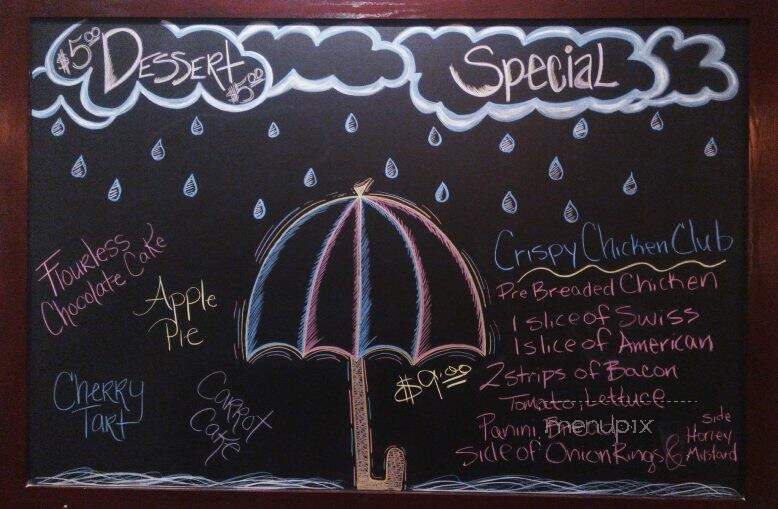 $5.00 Dessert $5.00
Special
Flourless
Chocolate Cake
Apple
Pie
Cherry
Tart
Carrot
Cake
$9.00
Crispy Chicken Club
Pre Breaded Chicken
1 slice of Swiss
1 slice of American
2 strips of Bacon
Tomato, Lettuce
Panini Bread
Side of Onion Rings &
Side
Honey
Mustard
menupix